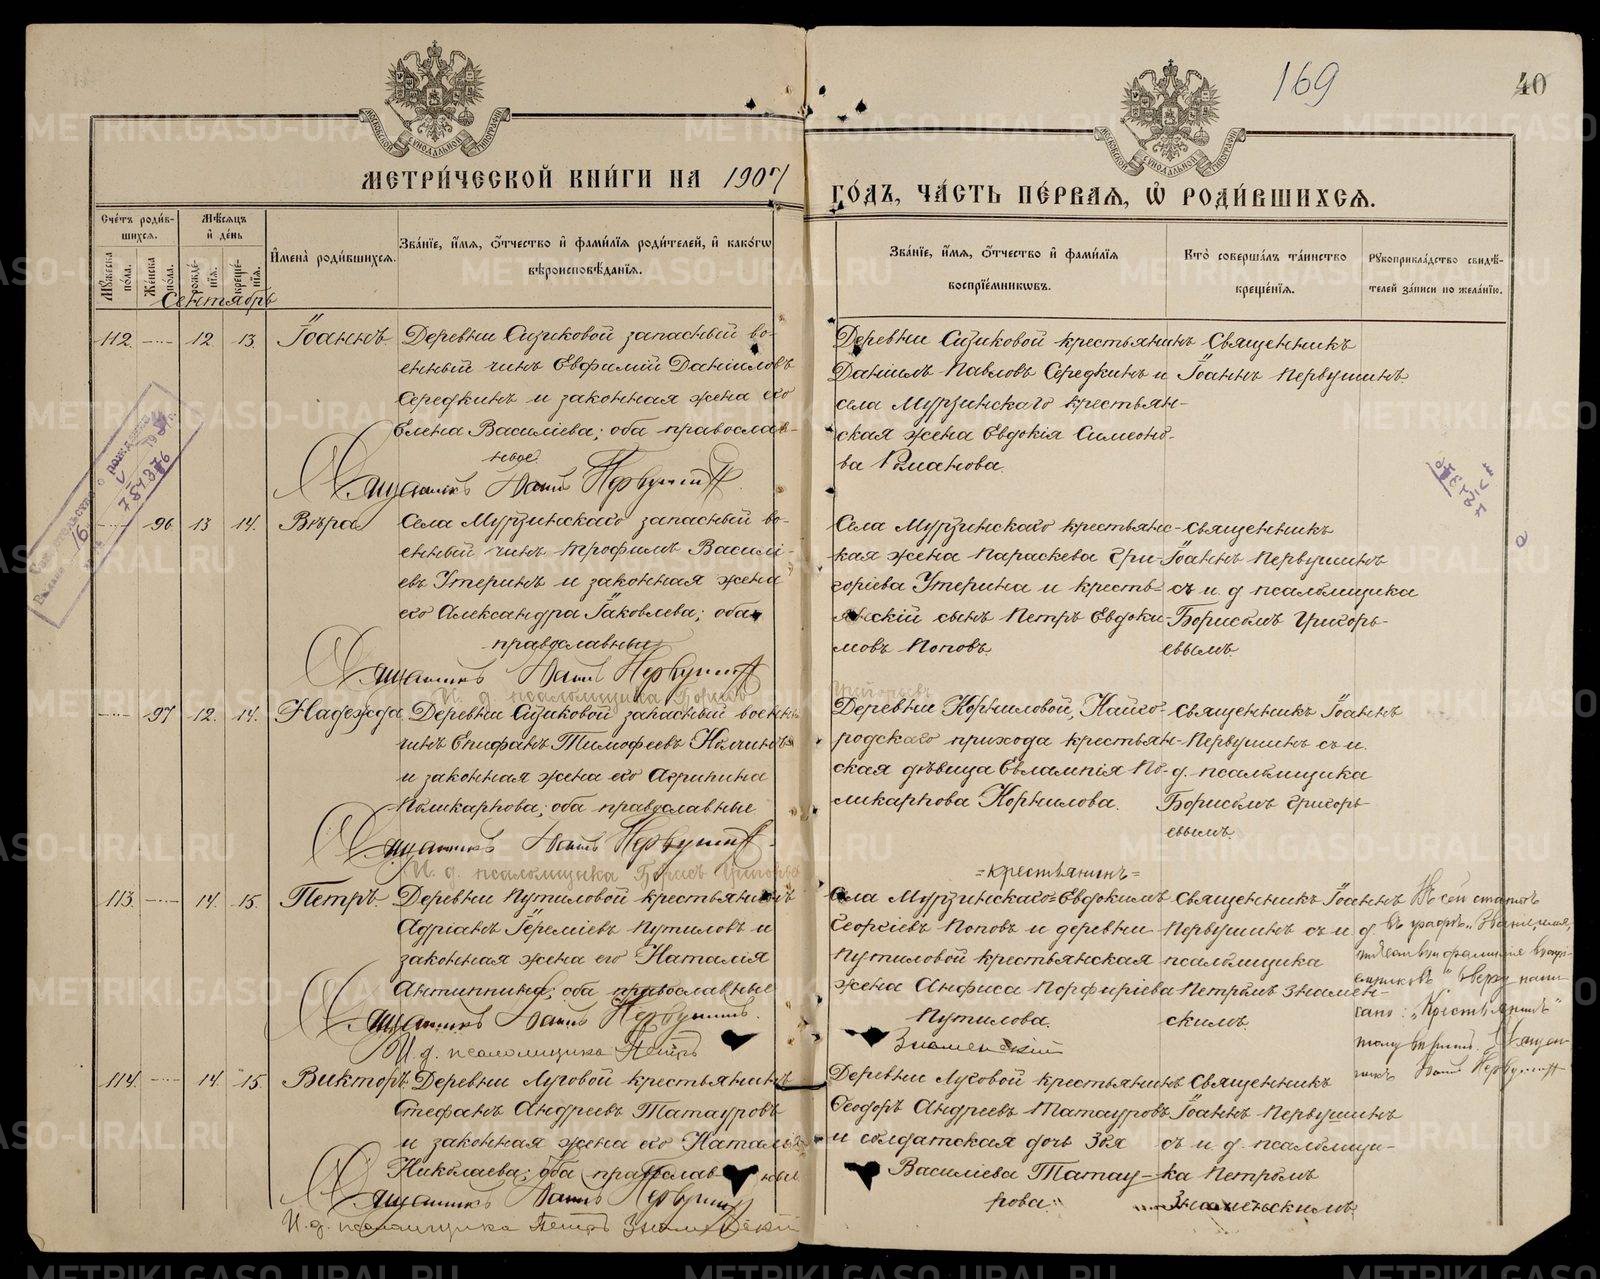 169
40
МЕТРИЧЕСКОЙ КНИГИ НА 1907
ГОДЪ, ЧАСТЬ ПЕРВАЯ, Ѿ РОДИВШИХСЯ.
Счетъ родив-
шихся.
Мѣсяцъ
и день
Мужеска пола.
Женска пола.
рожде-
нія.
креще-
нія.
Имена родившихся.
Званіе, имя, отчество и фамилія родителей, и какогѡ
вѣроисповѣданія.
Званіе, имя, отчество и фамилія
воспріемникѡвъ.
Кто совершалъ таинство
крещенія.
Рукоприкладство свидѣ-
телей записи по желанію.
Сентябрь
112. 12. 13. Іоаннъ
Деревни Сизиковой запасный во-
енный чинъ Евфимій Даніиловъ
Середкинъ и законная жена его
Елена Василіева; оба православ-
ные.
Священникъ Іоаннъ Первушинъ
Деревни Сизиковой крестьянинъ
Даніилъ Павловъ Середкинъ и
села Мурзинскаго крестьян-
ская жена Евдокія Симеоно-
ва Романова.
Священникъ
Іоаннъ Первушинъ
96 13 14. Вѣра
Села Мурзинскаго запасный во-
енный чинъ Трофимъ Василі-
евъ Утеринъ и законная жена
его Александра Іаковлева; оба
православные
Священникъ Іоаннъ Первушинъ
И. д. псаломщика Борисъ
Григорьевъ
Села Мурзинскаго крестьянс-
кая жена Параскева Гри-
горіева Утерина и кресть-
янскій сынъ Петръ Евдоки-
мовъ Поповъ.
Священникъ
Іоаннъ Первушинъ
съ и. д. псаломщика
Борисомъ Григорь-
евымъ.
97 12. 14. Надежда
Деревни Сизиковой запасный военный
чинъ Епифанъ Тимофеевъ
и законная жена его Агрипина
Поликарпова; оба православные
Священникъ Іоаннъ Первушинъ
И. д. псаломщика Борисъ Григорьевъ
Деревни Корниловой, Кайго-
родскаго прихода крестьян-
ская дѣвица Евлампія По-
ликарпова Корнилова.
Священникъ Іоаннъ
Первушинъ съ и.
д. псаломщика
Борисомъ Григорь-
евымъ.
113. 14. 15. Петръ.
Деревни Путиловой крестьянинъ
Адріанъ Іереміевъ Путиловъ и
законная жена его Наталія
Антипина; оба православные
Священникъ Іоаннъ Первушинъ.
И. д. псаломщика Петръ
Знаменскій
=крестьянинъ=
Села Мурзинскаго=Евдокимъ
Георгіевъ Поповъ и деревни
Путиловой крестьянская
жена Анфиса Порфиріева
Путилова.
Священникъ Іоаннъ
Первушинъ съ и. д.
псаломщика
Петромъ Знамен-
скимъ.
Въ сей статьѣ
въ графѣ „Званіе, имя,
отчество и фамилія воспрі-
емниковъ" сверху напи-
сано: „Крестьянинъ"
тому вѣрить. Священ-
никъ Іоаннъ Первушинъ
114. 14. 15. Викторъ.
Деревни Луговой крестьянинъ
Стефанъ Андреевъ Татауровъ
и законная жена его Наталія
Николаева; оба православные
Священникъ Іоаннъ Первушинъ
И. д. псаломщика Петръ Знаменскій
Деревни Луговой крестьянинъ
Ѳеодоръ Андреевъ Татауровъ
и солдатская дочь Зоя
Василіева Татау-
рова.
Священникъ
Іоаннъ Первушинъ
съ и. д. псаломщи-
ка Петромъ
Знаменскимъ.
METRIKI.GASO-URAL.RU